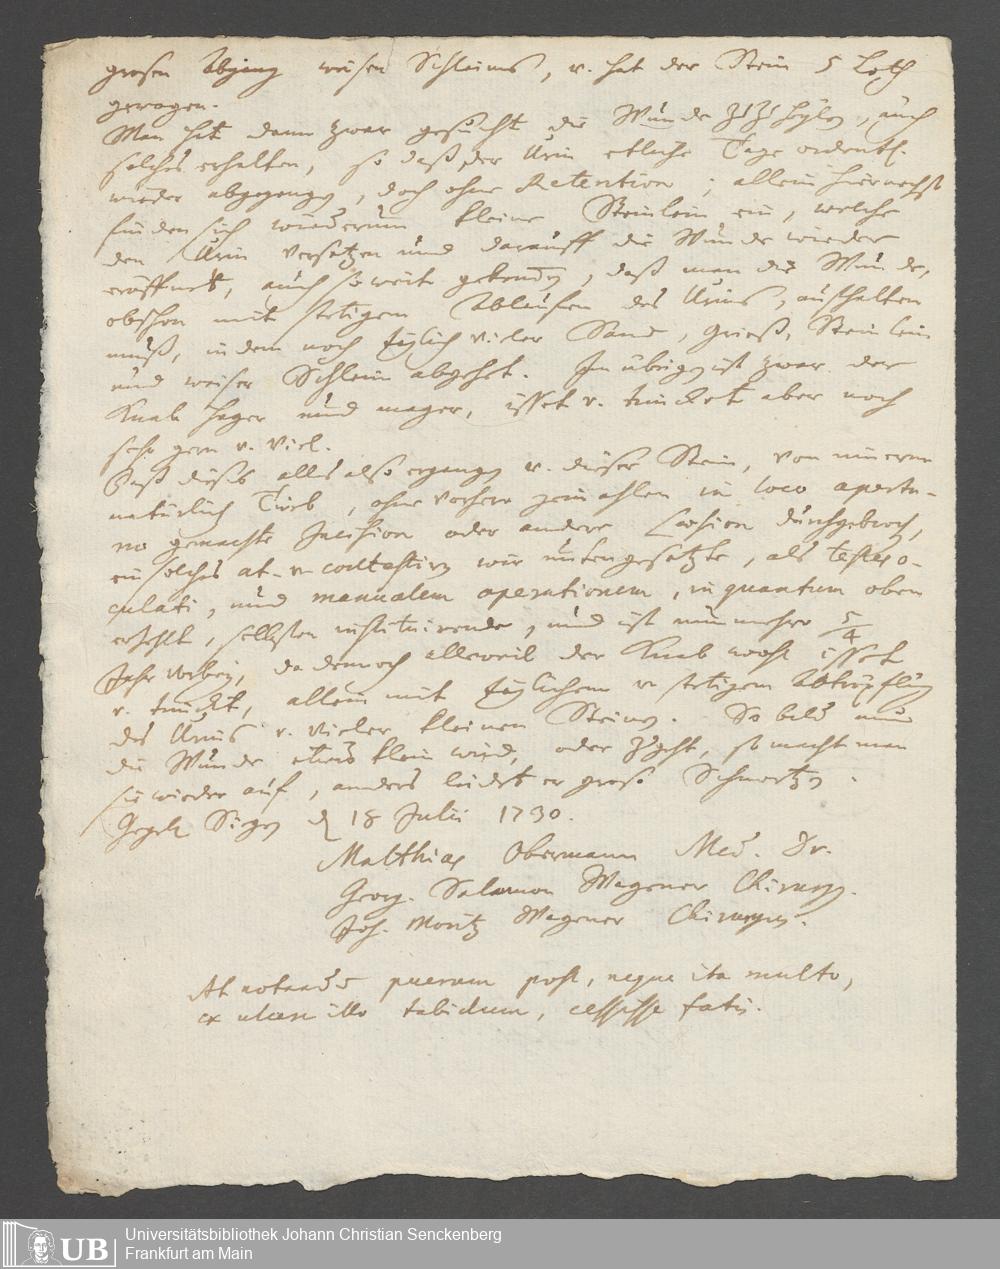 großen Abgang weisen Schleims, v. hat der Stein 5 Loth
gewogen.
Man hat dann zwar gesucht die Wunde zu heylen, auch
solches erhalten, so daß der Urin etliche Tage ordentl.
wieder abgegangen, doch ohne Retention; allein hiernechst
finden sich wiederum kleine Steinlein ein, welche
den Urin versetzen und darauff die Wunde wieder
eröffnet, auch so weit gekommen, daß man die Wunde,
obschon mit stetigem Ablaufen des Urins, aufhalten
muß, in dem noch täglich vieler Sand, Grieß, Steinlein
und weiser Schleim abgehet. Im übrigen ist zwar der
Knab hager und mager, isset v. trincket aber noch
sehr gern v. viel.
Daß dieses alles also ergangen v. dieser Stein, von
natürlich Trieb, ohne vorhero in loco apertu-
no gemachte Incision oder andere Laesion durchgebroch,
ein solches wir untengesetzte, als testes o-
culati, und manualem operationem, in quantum oben
erzehlt, selbsten instituirende, und ist nunmehro 5/4
Jahr vorbey, da dennoch alleweil der Knab wohl isset
v. trinckt, allein mit täglichem v. stetigem Abtröpflung
des Urins v. vieler kleinen Steine. So bald nun
die Wunde etwas klein wird, oder zugeht, so macht man
sie wieder auf, anders leidet er große Schmertzen.
Siegen d 18 Julii 1730.
Matthias Obermann Med. Dr.
Georg. Salamon Wagener Chirurg.
Joh. Moritz Wagener Chirurgus.
At notandum puerum post, neque ita multo,
ex ulcere illo tabidum, cessisse fatis.
UB
Universitätsbibliothek Johann Christian Senckenberg
Frankfurt am Main